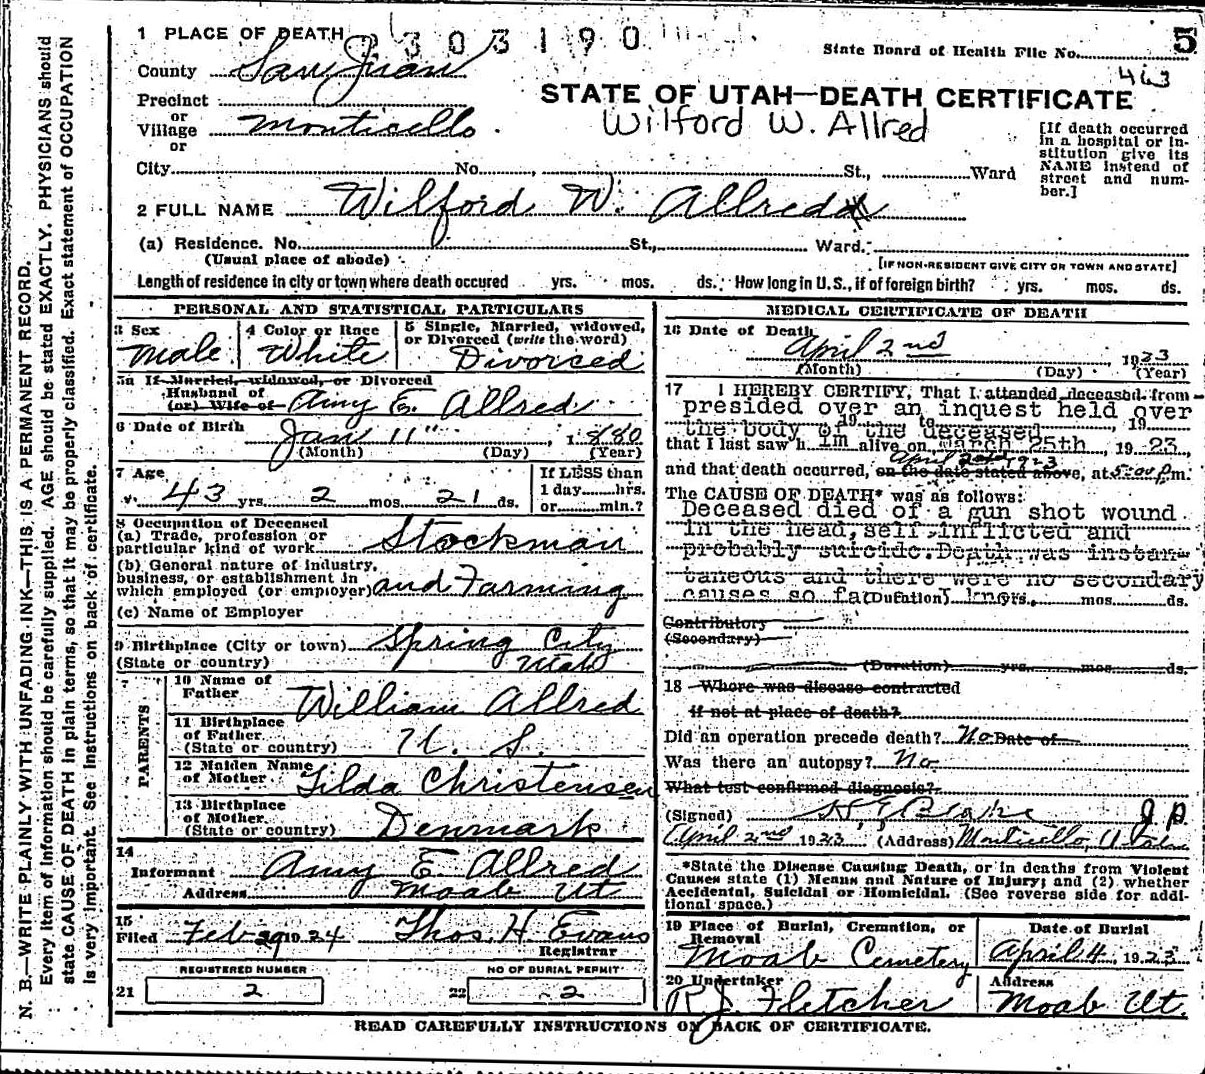 N. B.—WRITE PLAINLY WITH UNFADING INK—THIS IS A PERMANENT RECORD.
Every item of information should be carefully supplied. AGE should be stated EXACTLY. PHYSICIANS should
state CAUSE OF DEATH in plain terms, so that it may be properly classified. Exact statement of OCCUPATION
is very important. See instructions on back of certificate.
1 PLACE OF DEATH 2303190
State Board of Health File No. 5
County San Juan
463
Precinct
STATE OF UTAH—DEATH CERTIFICATE
or
Village Monticello.
Wilford W. Allred
or
City No. , St., Ward
[If death occurred
in a hospital or in-
stitution give its
NAME instead of
street and num-
ber.]
2 FULL NAME Wilford W. Allred
(a) Residence. No. St., Ward.
(Usual place of abode)
[IF NON-RESIDENT GIVE CITY OR TOWN AND STATE]
Length of residence in city or town where death occured yrs. mos. ds. How long in U. S., if of foreign birth? yrs. mos. ds.
PERSONAL AND STATISTICAL PARTICULARS
3 Sex
Male
4 Color or Race
White
5 Single, Married, widowed,
or Divorced (write the word)
Divorced
5a If Married, widowed, or Divorced
Husband of
(or) Wife of Amy E. Allred
6 Date of Birth
Jan 11" , 1880
(Month) (Day) (Year)
7 Age
43 yrs. 2 mos. 21 ds.
If LESS than
1 day hrs.
or min.?
8 Occupation of Deceased
(a) Trade, profession or
particular kind of work Stockman
(b) General nature of industry,
business, or establishment in
which employed (or employer) and Farming
(c) Name of Employer
9 Birthplace (City or town) Spring City
(State or country) Utah
PARENTS
10 Name of
Father William Allred
11 Birthplace
of Father
(State or country) U. S.
12 Maiden Name
of Mother Tilda Christensen
13 Birthplace
of Mother
(State or country) Denmark
14
Informant Amy E. Allred
Address Moab Ut
15
Filed Feb 29 1924 Thos. H. Evans
Registrar
REGISTERED NUMBER
21 2
NO OF BURIAL PERMIT
22 2
MEDICAL CERTIFICATE OF DEATH
16 Date of Death
April 2nd , 1923
(Month) (Day) (Year)
17 I HEREBY CERTIFY, That I attended deceased from
presided over an inquest held over
19 to 19
the body of the deceased
that I last saw h im alive on March 25th , 19 23,
April 2nd 1923
and that death occurred, on the date stated above, at 5:00 p.m.
The CAUSE OF DEATH* was as follows:
Deceased died of a gun shot wound
in the head, self inflicted and
probably suicide. Death was instan-
taneous and there were no secondary
causes so far (Duration) I know yrs. mos. ds.
Contributory
(Secondary)
(Duration) yrs. mos. ds.
18 Where was disease contracted
if not at place of death?
Did an operation precede death? No Date of
Was there an autopsy? No
What test confirmed diagnosis?
(Signed) J P
April 2nd 1923 (Address) Monticello, Utah
*State the Disease Causing Death, or in deaths from Violent
Causes state (1) Means and Nature of Injury; and (2) whether
Accidental, Suicidal or Homicidal. (See reverse side for addi-
tional space.)
19 Place of Burial, Cremation, or
Removal
Moab Cemetery
Date of Burial
April 4, 1923
20 Undertaker
R. J. Fletcher
Address
Moab Ut.
READ CAREFULLY INSTRUCTIONS ON BACK OF CERTIFICATE.